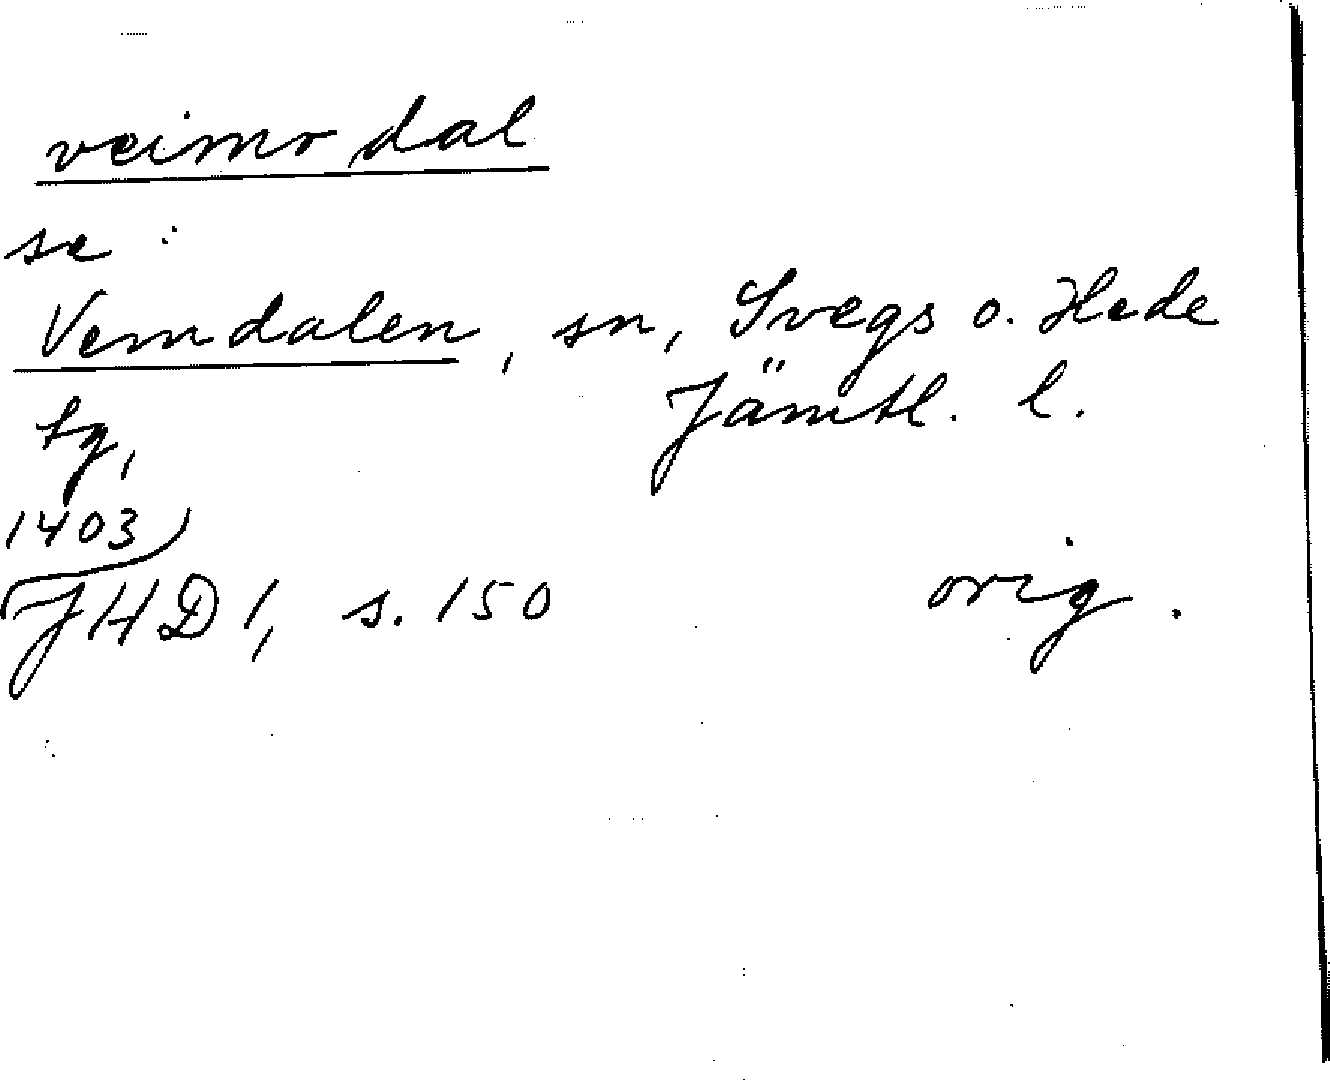 veimr dal
se :
Vemdalen, sn, Svegs o. Hede
tg, Jämtl. l.
1403
JHD 1, s. 150 orig.